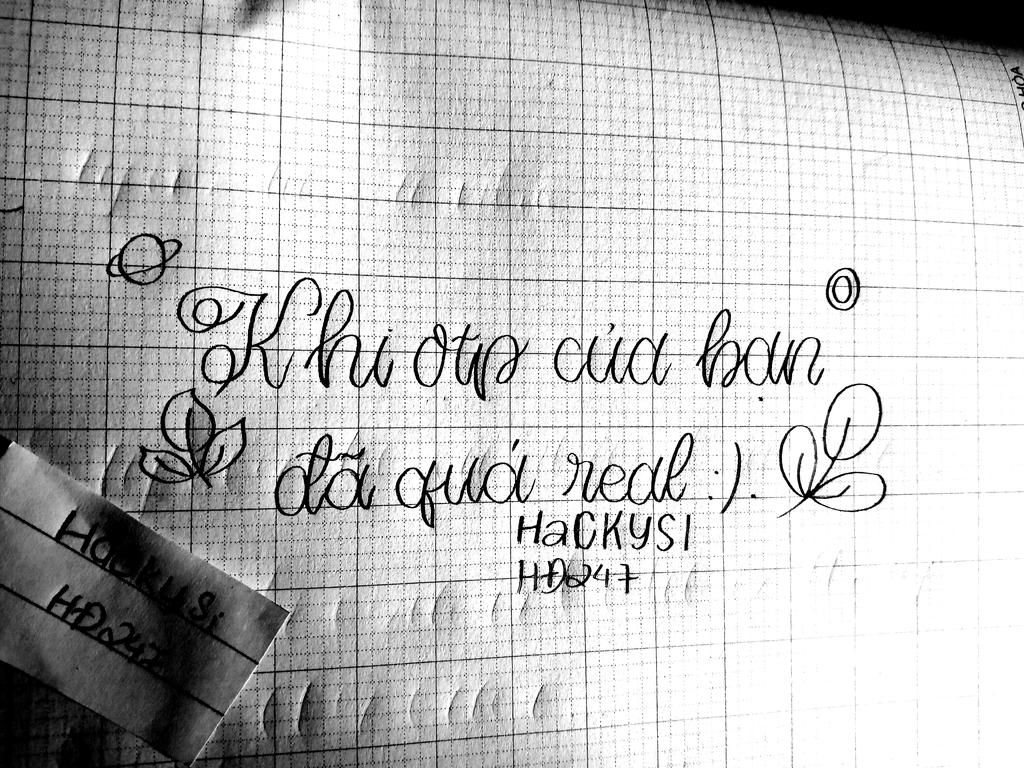 Khi otp của bạn
đã quá real :).
HaCKYSI
HĐ247
HaCKySi
HĐ247